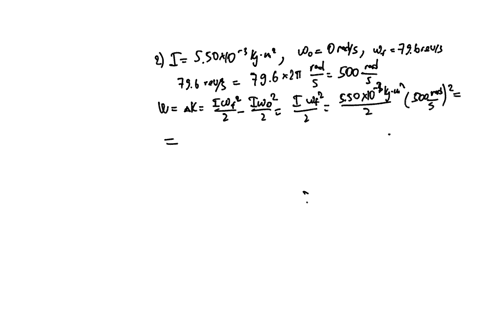 2) I = 5.50×10⁻³ kg·m², ω₀ = 0 rad/s, ω_f = 79.6 rev/s
79.6 rev/s = 79.6 × 2π rad/s = 500 rad/s
W = ΔK = Iω_f²/2 - Iω₀²/2 = Iω_f²/2 = 5.50×10⁻³ kg·m²/2 (500 rad/s)² =
=